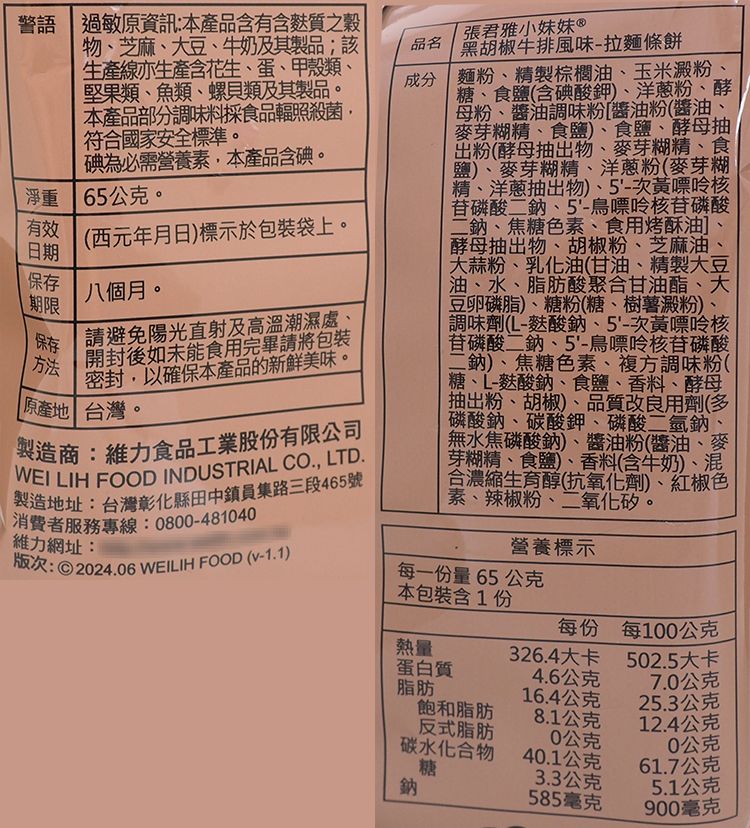 警語
過敏原資訊:本產品含有含麩質之穀
物、芝麻、大豆、牛奶及其製品；該
生產線亦生產含花生、蛋、甲殼類、
堅果類、魚類、螺貝類及其製品。
本產品部分調味料採食品輻照殺菌，
符合國家安全標準。
碘為必需營養素，本產品含碘。
淨重
65公克。
有效
日期
(西元年月日)標示於包裝袋上。
保存
期限
八個月。
保存
方法
請避免陽光直射及高溫潮濕處、
開封後如未能食用完畢請將包裝
密封，以確保本產品的新鮮美味。
原產地
台灣。
製造商：維力食品工業股份有限公司
WEI LIH FOOD INDUSTRIAL CO., LTD.
製造地址：台灣彰化縣田中鎮員集路三段465號
消費者服務專線：0800-481040
維力網址：
版次:©2024.06 WEILIH FOOD (v-1.1)
品名
張君雅小妹妹®
黑胡椒牛排風味-拉麵條餅
成分
麵粉、精製棕櫚油、玉米澱粉、
糖、食鹽(含碘酸鉀)、洋蔥粉、酵
母粉、醬油調味粉[醬油粉(醬油、
麥芽糊精、食鹽)、食鹽、酵母抽
出粉(酵母抽出物、麥芽糊精、食
鹽)、麥芽糊精、洋蔥粉(麥芽糊
精、洋蔥抽出物)、5'-次黃嘌呤核
苷磷酸二鈉、5'-鳥嘌呤核苷磷酸
二鈉、焦糖色素、食用烤酥油]、
酵母抽出物、胡椒粉、芝麻油、
大蒜粉、乳化油(甘油、精製大豆
油、水、脂肪酸聚合甘油酯、大
豆卵磷脂)、糖粉(糖、樹薯澱粉)、
調味劑(L-麩酸鈉、5'-次黃嘌呤核
苷磷酸二鈉、5'-鳥嘌呤核苷磷酸
二鈉)、焦糖色素、複方調味粉(
糖、L-麩酸鈉、食鹽、香料、酵母
抽出粉、胡椒)、品質改良用劑(多
磷酸鈉、碳酸鉀、磷酸二氫鈉、
無水焦磷酸鈉)、醬油粉(醬油、麥
芽糊精、食鹽)、香料(含牛奶)、混
合濃縮生育醇(抗氧化劑)、紅椒色
素、辣椒粉、二氧化矽。
營養標示
每一份量 65 公克
本包裝含 1 份
每份 每100公克
熱量 326.4大卡 502.5大卡
蛋白質 4.6公克 7.0公克
脂肪 16.4公克 25.3公克
飽和脂肪 8.1公克 12.4公克
反式脂肪 0公克 0公克
碳水化合物 40.1公克 61.7公克
糖 3.3公克 5.1公克
鈉 585毫克 900毫克